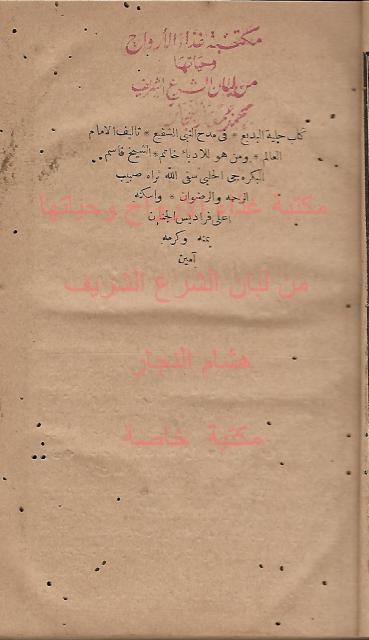 مكتبة غذاء الأرواح
وحياتها
من لبان الشرع الشريف
محمد
كتاب حلية البديع * فى مدح النبى الشفيع * تأليف الامام
العالم * ومن هو للادباء خاتم * الشيخ قاسم
البكره جى الحلبى سقى الله ثراه صبيب
الرحمة والرضوان * واسكنه
اعلى فراديس الجنان
بمنه وكرمه
آمين
مكتبة غذاء الأرواح وحياتها
من لبان الشرع الشريف
هشام النجار
مكتبة خاصة